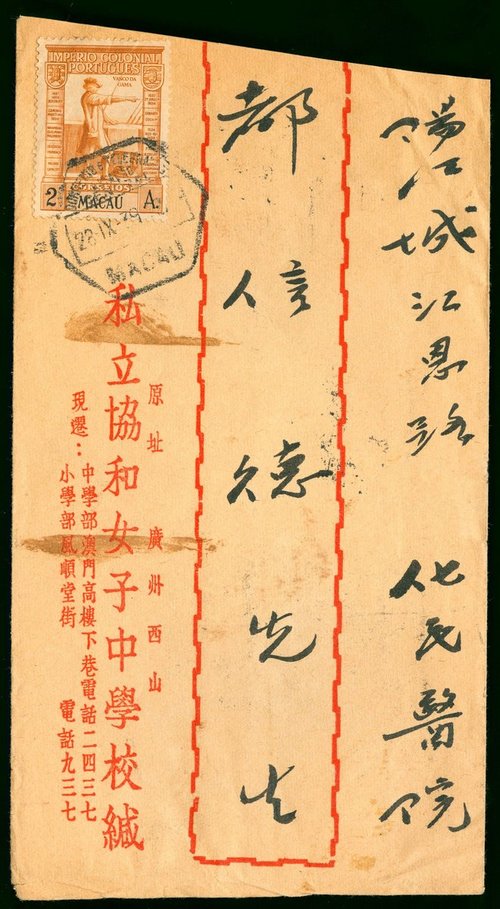 陽江城江恩路 化民醫院
都信德先生
原址 廣州西山
私立協和女子中學校緘
現遷：中學部澳門高樓下巷電話二四三七
小學部風順堂街 電話九三七
IMPERIO COLONIAL
PORTUGUÊS
VASCO DA
GAMA
CORREIOS
2 MACAU A.
28 IX 39
MACAU